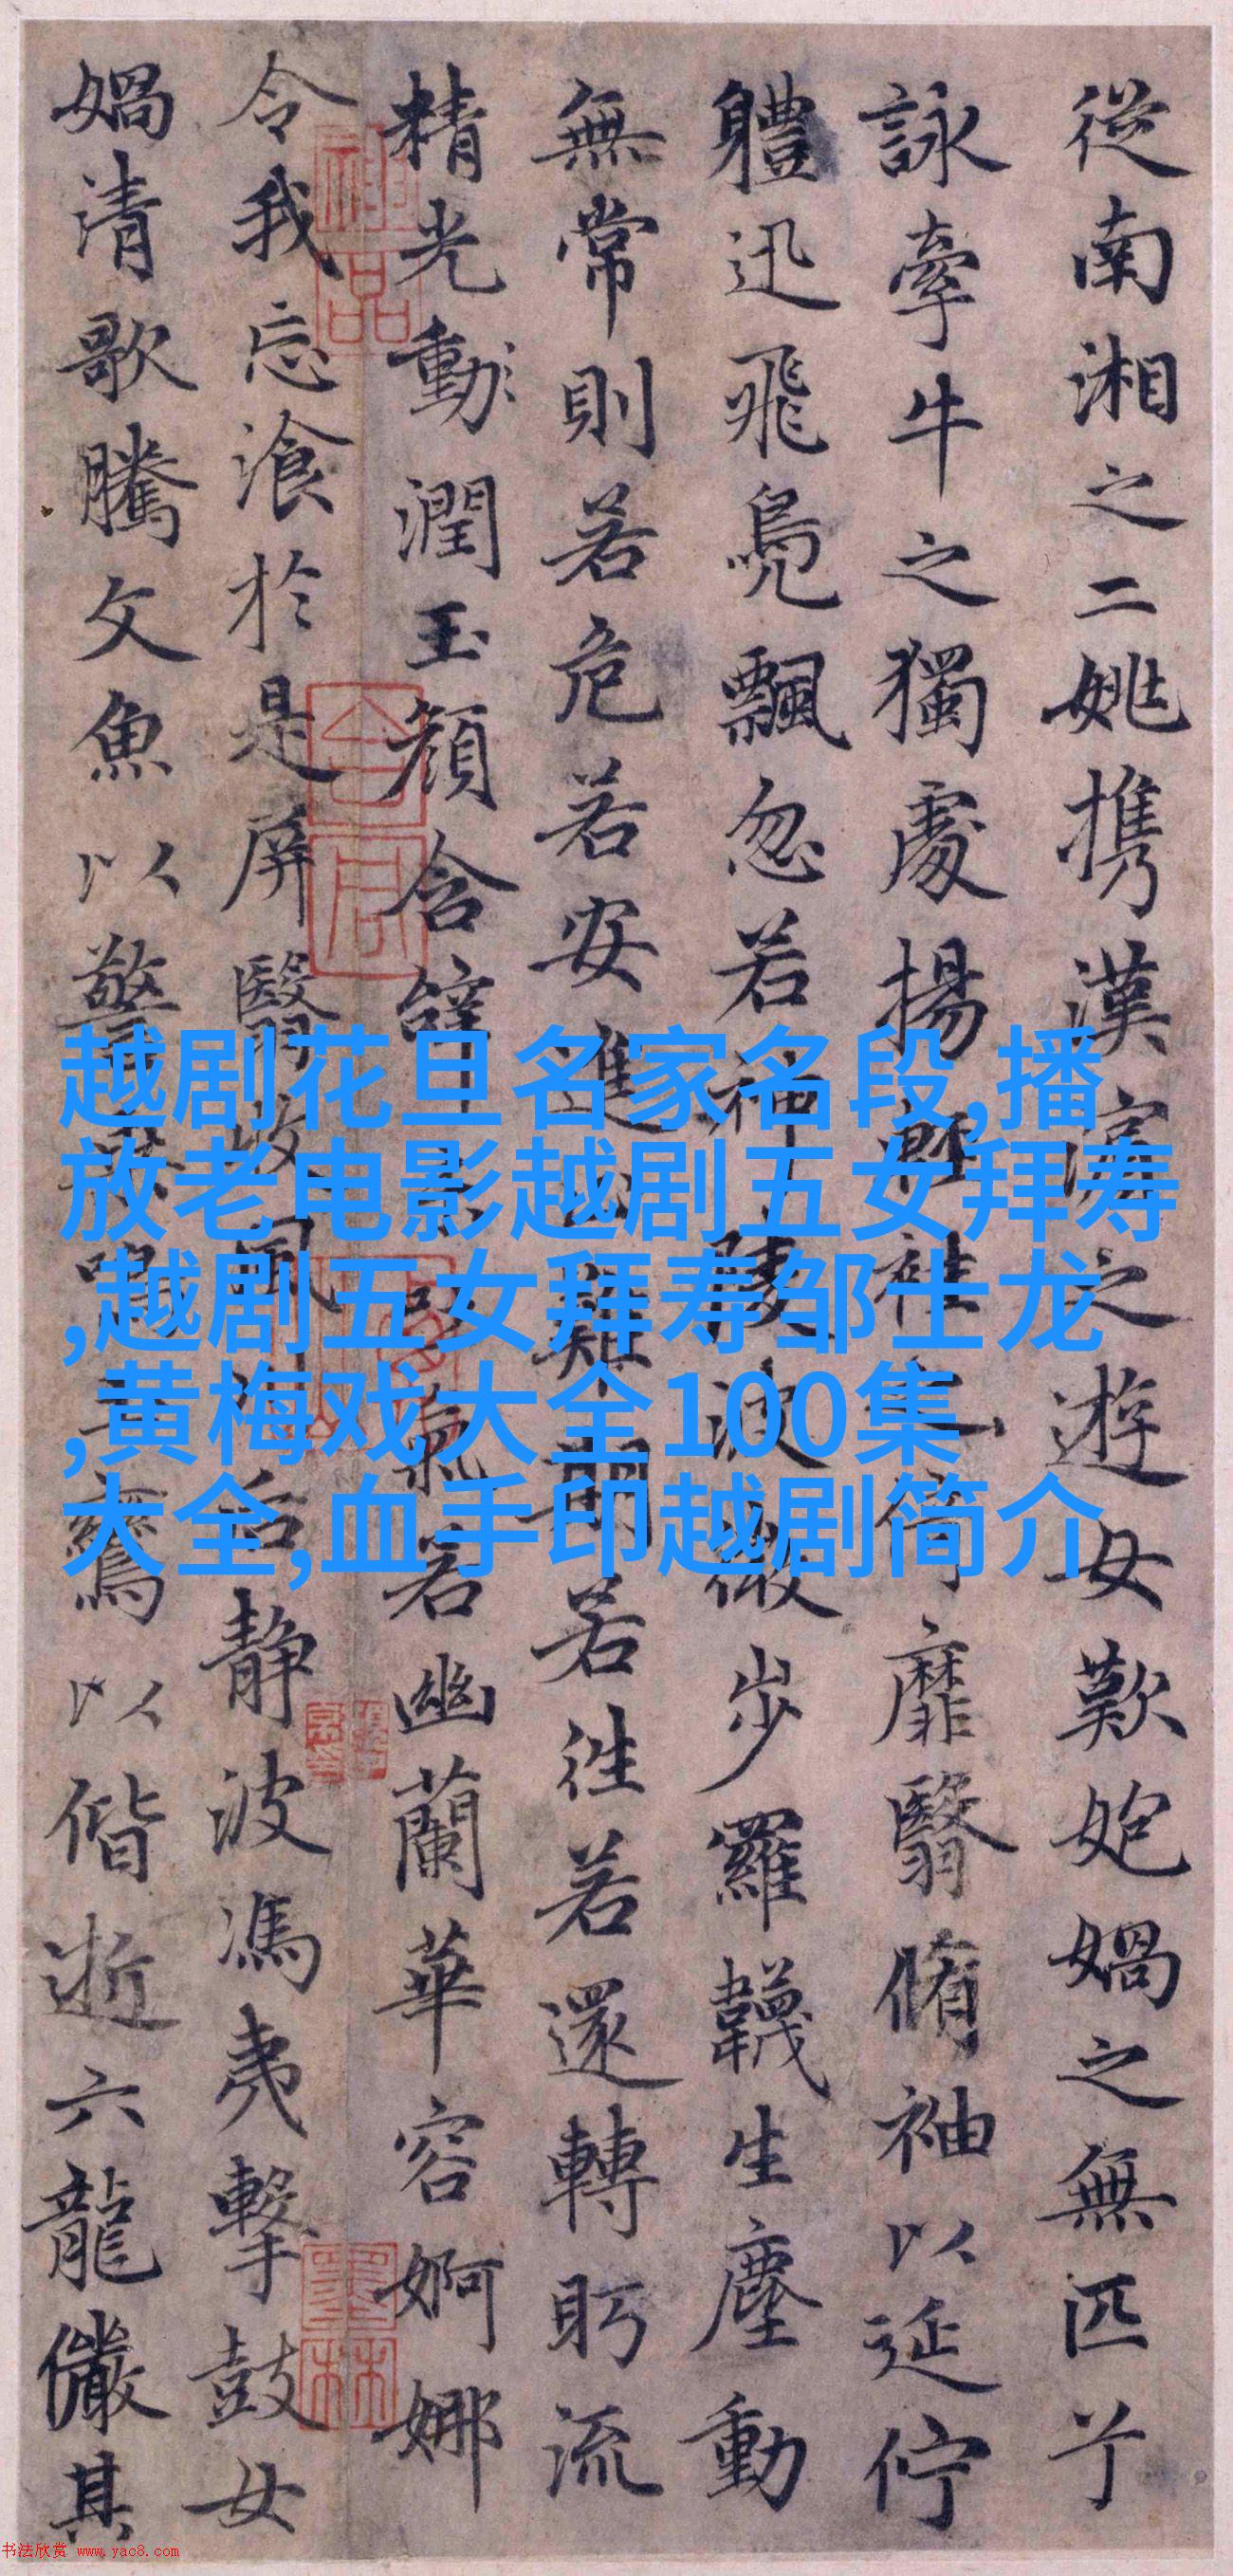 從南湘之二姚携漢濱之遊女歎媧之無匹兮
詠牽牛之獨處揚輕袿之倚靡翳脩袖以延佇
軆迅飛鳧飄忽若神陵波微步羅韈生塵動
無常則若危若安進止難期若往若還轉眄流
精光動潤玉顏含辭氣若幽蘭華容婀娜
令我忘湌於是屏翳收風川后静波馮夷擊鼓女
媧清歌騰文魚以警鳴玉鸞以偕逝六龍儼其
越剧花旦名家名段,播
放老电影越剧五女拜寿
,越剧五女拜寿邹士龙
,黄梅戏大全100集
大全,血手印越剧简介
书法欣赏 www.yac8.com